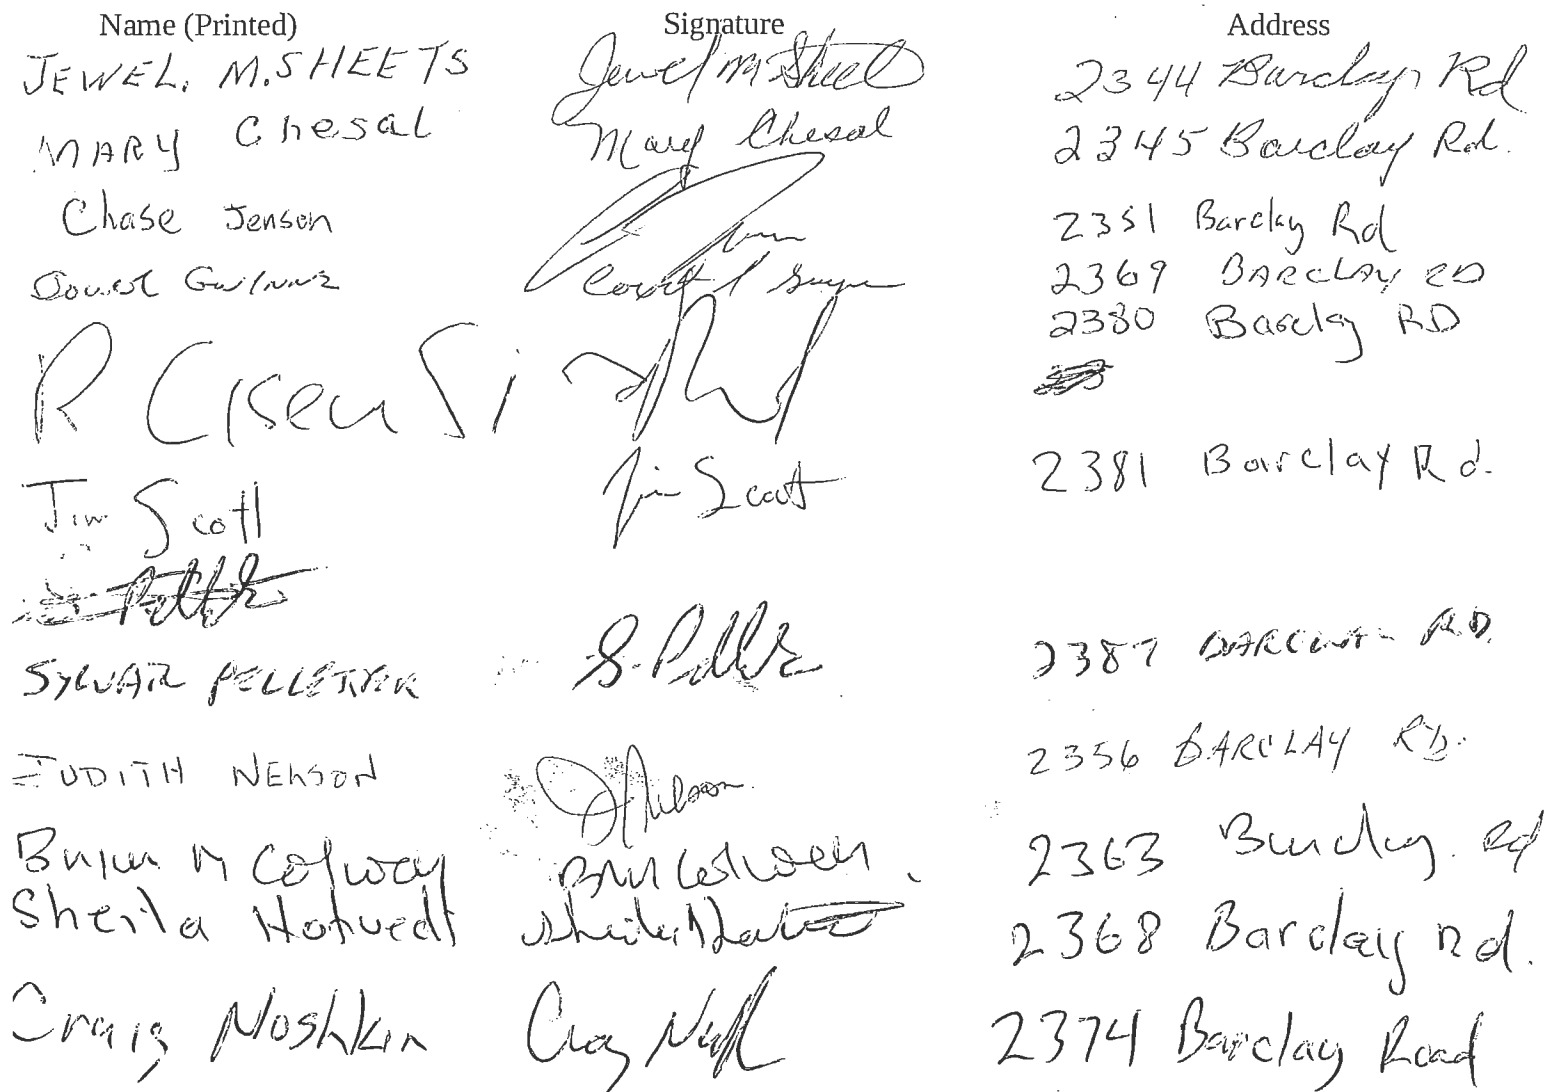 Name (Printed) Signature Address
JEWEL. M. SHEETS Jewel M Sheets 2344 Barclay Rd
MARY Chesal Mary Chesal 2345 Barclay Rd.
Chase Jenson 2351 Barclay Rd
2369 BARCLAY RD
R 2380 Barclay RD
Jim Scott Jim Scott 2381 Barclay Rd.
PELLETIER S. 2387 BARCLAY RD.
JUDITH NELSON J Nelson 2356 BARCLAY RD.
Brian M 2363 Barclay Rd
Sheila Hotvedt Sheila 2368 Barclay Rd.
Craig Noshkin Craig 2374 Barclay Road